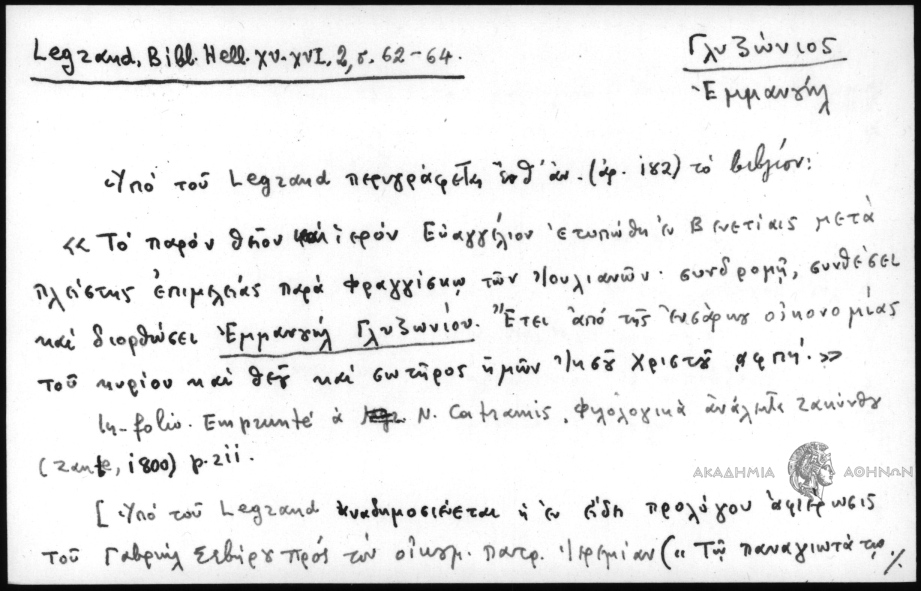 Legrand. Bibl. Hell. XV-XVI, 2, σ. 62-64.
Γλυζώνιος
Ἐμμανουήλ
Ὑπό τοῦ Legrand περιγράφεται ἐνθ' ἀν. (ἀρ. 182) τό βιβλίον:
«Τό παρόν θεῖον καί ἱερόν Εὐαγγέλιον ἐτυπώθη ἐν Βενετίαις μετά
πλείστης ἐπιμελείας παρά Φραγγίσκῳ τῶν Ἰουλιανῶν. συνδρομῇ, συνθέσει
καί διορθώσει Ἐμμανουήλ Γλυζωνίου. Ἔτει ἀπό τῆς ἐνσάρκου οἰκονομίας
τοῦ κυρίου καί θεοῦ καί σωτῆρος ἡμῶν Ἰησοῦ Χριστοῦ ͵αφπή.»
In-folio. Emprunté à N. Catramis, Φιλολογικά ἀνάλεκτα Ζακύνθου
(Zante, 1800) p. 211.
ΑΚΑΔΗΜΙΑ ΑΘΗΝΩΝ
[Ὑπό τοῦ Legrand ἀναδημοσιεύεται ἡ ἐν εἴδει προλόγου ἀφιέρωσις
τοῦ Γαβριήλ Σεβήρου πρός τόν οἰκουμ. πατρ. Ἱερεμίαν («Τῷ παναγιωτάτῳ
./.